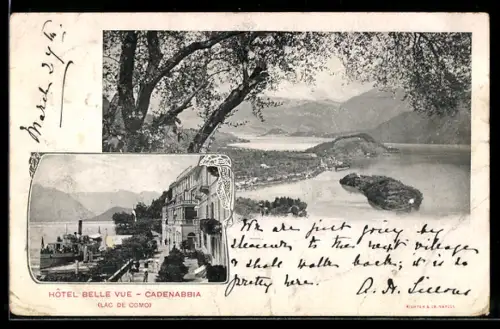 March 29th
We are just going by
steamer to the next village
& shall walk back; it is so
pretty here. A. H.
HÔTEL BELLE VUE - CADENABBIA
(LAC DE COMO)
RICHTER & C°, NAPOLI